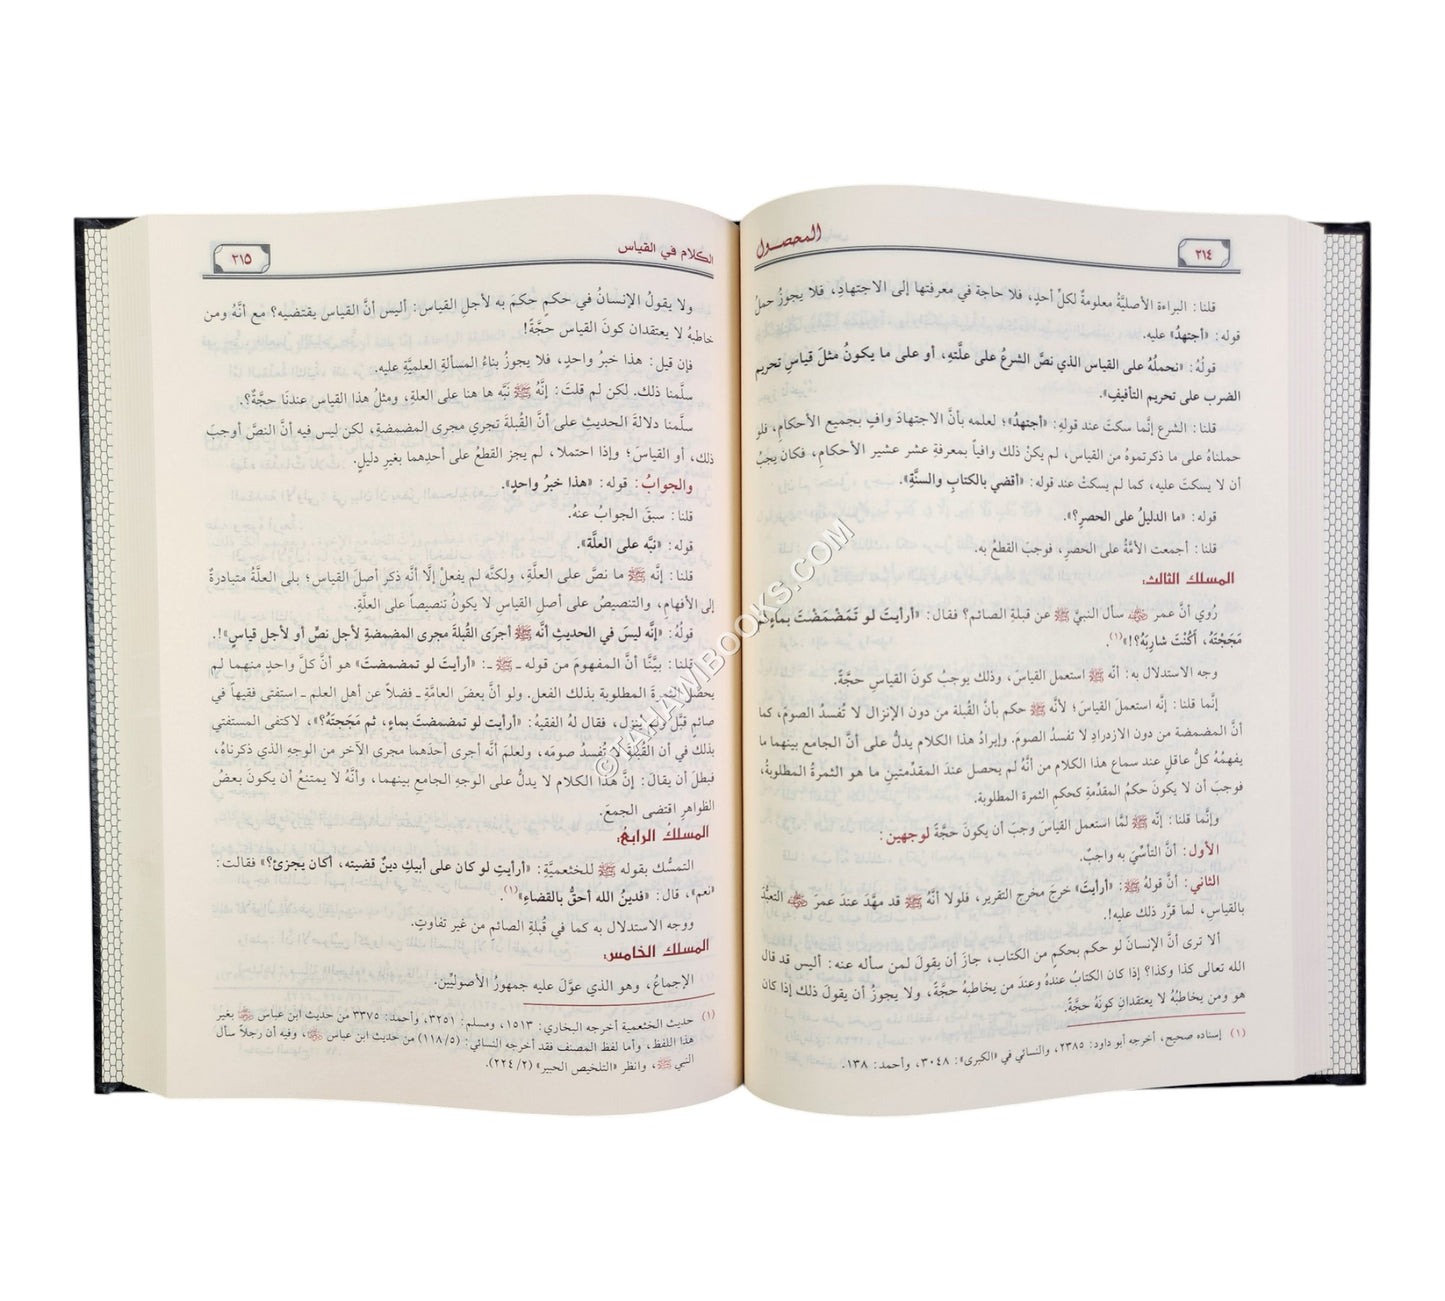 ٢١٤
المحصول
قلنا: البراءة الأصليَّةُ معلومةٌ لكلِّ أحدٍ، فلا حاجة في معرفتها إلى الاجتهادِ، فلا يجوزُ حملُ
قوله: «أجتهدُ» عليه.
قولُهُ: «نحملُهُ على القياس الذي نصَّ الشرعُ على علَّتهِ، أو على ما يكونُ مثلَ قياسِ تحريم
الضرب على تحريم التأفيف».
قلنا: الشرع إنَّما سكتَ عند قولهِ: «أجتهدُ»؛ لعلمه بأنَّ الاجتهادَ وافٍ بجميع الأحكامِ، فلو
حملناهُ على ما ذكرتموهُ من القياسَ، لم يكنْ ذلك وافياً بمعرفةِ عشر عشير الأحكامِ، فكان يجبُ
أن لا يسكتَ عليه، كما لم يسكتْ عند قوله: «أقضي بالكتابِ والسنَّةِ».
قوله: «ما الدليلُ على الحصرِ؟».
قلنا: أجمعت الأمَّةُ على الحصرِ، فوجبَ القطعُ به.
المسلك الثالث:
رُوي أنَّ عمر ﷺ سأل النبيَّ ﷺ عن قبلةِ الصائم؟ فقال: «أرأيتَ لو تَمَضْمَضْتَ بماءٍ ثم
مَجَجْتَهُ، أكُنْتَ شارِبَهُ؟!»(١).
وجه الاستدلال به: أنَّه ﷺ استعمل القياسَ، وذلك يوجبُ كونَ القياسِ حجَّةً.
إنَّما قلنا: إنَّه استعملَ القياسَ؛ لأنَّهُ ﷺ حكم بأنَّ القُبلة من دون الإنزال لا تُفسدُ الصومَ، كما
أنَّ المضمضة من دون الازدرادِ لا تفسد الصومَ. وإيرادُ هذا الكلام يدلُّ على أنَّ الجامع بينهما ما
يفهمُهُ كلُّ عاقلٍ عند سماع هذا الكلام من أنَّهُ لم يحصل عندَ المقدِّمتينِ ما هو الثمرةُ المطلوبةُ،
فوجبَ أن لا يكونَ حكمُ المقدِّمةِ كحكمِ الثمرة المطلوبة.
وإنَّما قلنا: إنَّه ﷺ لمَّا استعمل القياسَ وجبَ أن يكونَ حجَّةً لوجهين:
الأول: أنَّ التأسِّيَ به واجبٌ.
الثاني: أنَّ قولهُ ﷺ: «أرأيتَ» خرجَ مخرج التقرير، فلولا أنَّهُ ﷺ قد مهَّدَ عندَ عمرَ التعبُّدَ
بالقياسِ، لما قرَّر ذلك عليه!.
ألا ترى أنَّ الإنسانَ لو حكم بحكمٍ من الكتاب، جازَ أن يقولَ لمن سأله عنه: أليس قد قال
الله تعالى كذا وكذا؟ إذا كان الكتابُ عندهُ وعندَ من يخاطبهُ حجَّةً، ولا يجوزُ أن يقولَ ذلك إذا كان
هو ومن يخاطبُهُ لا يعتقدانِ كونَهُ حجَّةً.
(١) إسناده صحيح، أخرجه أبو داود: ٢٣٨٥، والنسائي في «الكبرى»: ٣٠٤٨، وأحمد: ١٣٨.
الكلام في القياس
٢١٥
ولا يقولُ الإنسانُ في حكمٍ حكَمَ به لأجلِ القياس: أليس أنَّ القياس يقتضيه؟ مع أنَّهُ ومن
خاطبهُ لا يعتقدان كونَ القياسَ حجَّةً!
فإن قيل: هذا خبرُ واحدٍ، فلا يجوزُ بناءُ المسألةِ العلميَّةِ عليه.
سلَّمنا ذلك. لكن لم قلتَ: إنَّهُ ﷺ نَبَّه ها هنا على العلةِ، ومثلُ هذا القياس عندنَا حجَّةٌ؟.
سلَّمنا دلالةَ الحديثِ على أنَّ القُبلةَ تجري مجرى المضمضةِ، لكن ليس فيه أنَّ النصَّ أوجبَ
ذلك، أو القياسَ؛ وإذا احتملا، لم يجز القطعُ على أحدِهما بغيرِ دليلٍ.
والجوابُ: قوله: «هذا خبرُ واحدٍ».
قلنا: سبقَ الجوابُ عنهُ.
قوله: «نبَّه على العلَّة».
قلنا: إنَّه ﷺ ما نصَّ على العلَّةِ، ولكنَّه لم يفعلْ إلَّا أنَّه ذكرَ أصلَ القياسِ؛ بلى العلةُ متبادرةٌ
إلى الأفهامِ، والتنصيصُ على أصلِ القياسِ لا يكونُ تنصيصاً على العلَّةِ.
قولُهُ: «إنَّه ليسَ في الحديثِ أنَّه ﷺ أجرَى القُبلةَ مجرى المضمضةِ لأجل نصٍّ أو لأجلِ قياسٍ»!.
قلنا: بيَّنَّا أنَّ المفهومَ من قوله ـ ﷺ ـ: «أرأيتَ لو تمضمضتَ» هو أنَّ كلَّ واحدٍ منهما لم
يحصِّل الثمرةَ المطلوبةَ بذلك الفعل. ولو أنَّ بعضَ العامَّةِ ـ فضلاً عن أهلِ العلمِ ـ استفتى فقيهاً في
صائمٍ قبَّلَ ولم يُنزل، فقال لهُ الفقيهُ: «أرأيت لو تمضمضتَ بماءٍ، ثم مَججتَهُ؟»، لاكتفى المستفتي
بذلك في أن القُبلةَ لا تُفسدُ صومَه، ولعلمَ أنَّه أجرى أحدَهما مجرى الآخر من الوجهِ الذي ذكرناهُ،
فبطلَ أن يقالَ: إنَّ هذا الكلام لا يدلُّ على الوجهِ الجامعِ بينهما، وأنَّهُ لا يمتنعُ أن يكونَ بعضُ
الظواهرِ اقتضى الجمعَ.
المسلك الرابع:
التمسُّك بقوله ﷺ للخثعميَّةِ: «أرأيتِ لو كان على أبيكِ دينٌ قضيته، أكان يجزئ؟» فقالت:
«نعم»، قال: «فدينُ الله أحقُّ بالقضاءِ»(١).
ووجه الاستدلال به كما في قُبلةِ الصائم من غير تفاوتٍ.
المسلك الخامس:
الإجماعُ، وهو الذي عوَّلَ عليه جمهورُ الأصوليِّين.
(١) حديث الخثعمية أخرجه البخاري: ١٥١٣، ومسلم: ٣٢٥١، وأحمد: ٣٣٧٥ من حديث ابن عباس بغير
هذا اللفظ، وأما لفظ المصنف فقد أخرجه النسائي: (١١٨/٥) من حديث ابن عباس، وفيه أن رجلاً سأل
النبي ﷺ، وانظر «التلخيص الحبير» (٢٢٤/٢).
©TAHAWIBOOKS.COM